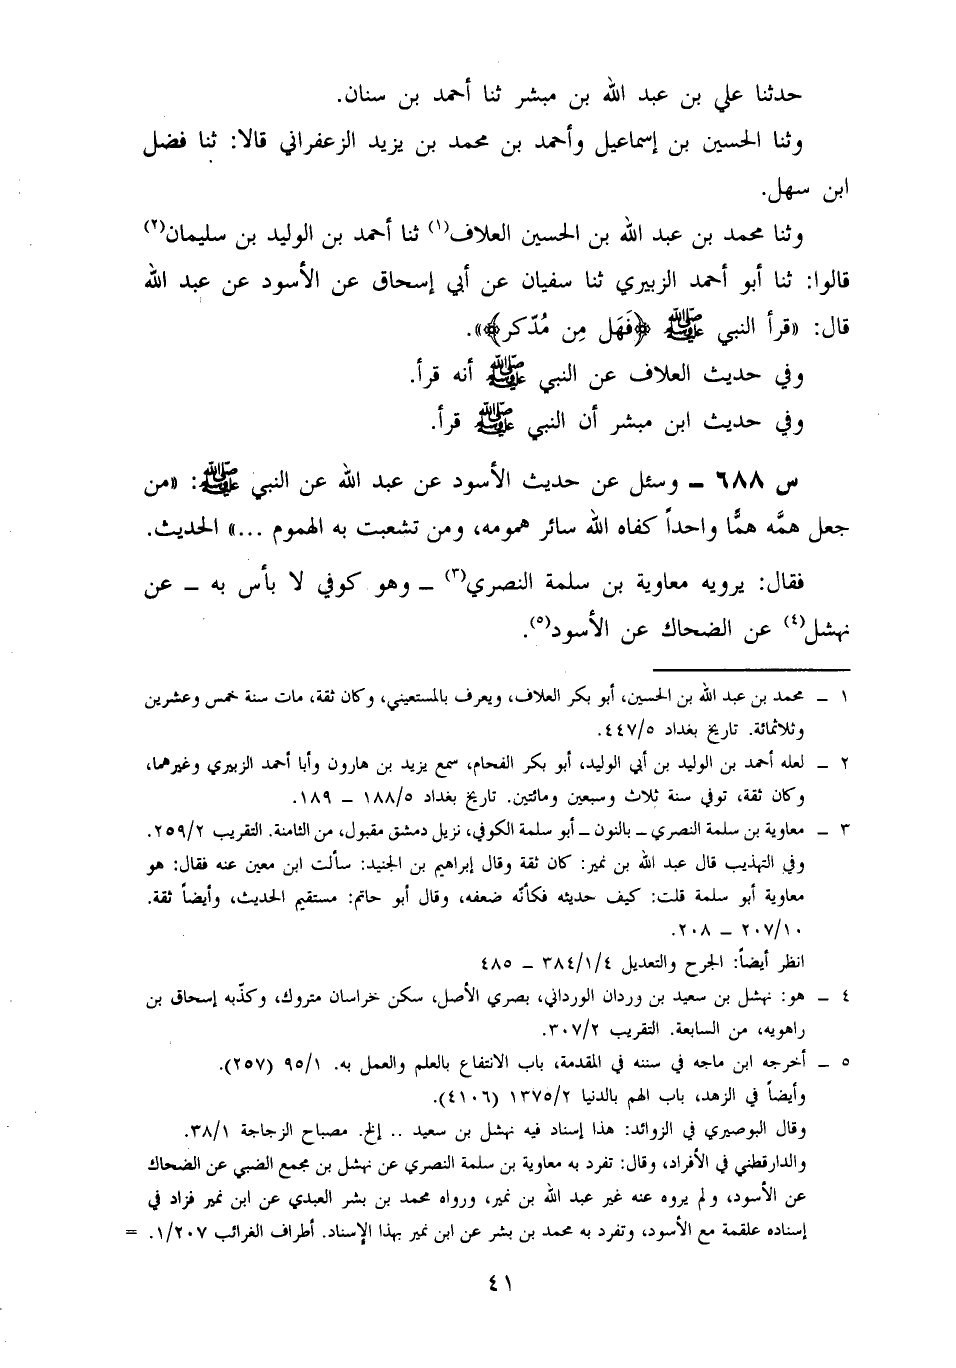 حدثنا علي بن عبد الله بن مبشر ثنا أحمد بن سنان.
وثنا الحسين بن إسماعيل وأحمد بن محمد بن يزيد الزعفراني قالا: ثنا فضل
ابن سهل.
وثنا محمد بن عبد الله بن الحسين العلاف(١) ثنا أحمد بن الوليد بن سليمان(٢)
قالوا: ثنا أبو أحمد الزبيري ثنا سفيان عن أبي إسحاق عن الأسود عن عبد الله
قال: «قرأ النبي ﷺ ﴿فَهَل مِن مُدّكر﴾».
وفي حديث العلاف عن النبي ﷺ أنه قرأ.
وفي حديث ابن مبشر أن النبي ﷺ قرأ.
س ٦٨٨ ـ وسئل عن حديث الأسود عن عبد الله عن النبي ﷺ: «من
جعل همَّه همًّا واحداً كفاه الله سائر همومه، ومن تشعبت به الهموم ...» الحديث.
فقال: يرويه معاوية بن سلمة النصري(٣) ـ وهو كوفي لا بأس به ـ عن
نهشل(٤) عن الضحاك عن الأسود(٥).
١ ـ محمد بن عبد الله بن الحسين، أبو بكر العلاف، ويعرف بالمستعيني، وكان ثقة، مات سنة خمس وعشرين
وثلاثمائة. تاريخ بغداد ٤٤٧/٥.
٢ ـ لعله أحمد بن الوليد بن أبي الوليد، أبو بكر الفحام، سمع يزيد بن هارون وأبا أحمد الزبيري وغيرهما،
وكان ثقة، توفي سنة ثلاث وسبعين ومائتين. تاريخ بغداد ١٨٨/٥ ـ ١٨٩.
٣ ـ معاوية بن سلمة النصري ـ بالنون ـ أبو سلمة الكوفي، نزيل دمشق مقبول، من الثامنة. التقريب ٢٥٩/٢.
وفي التهذيب قال عبد الله بن نمير: كان ثقة وقال إبراهيم بن الجنيد: سألت ابن معين عنه فقال: هو
معاوية أبو سلمة قلت: كيف حديثه فكأنّه ضعفه، وقال أبو حاتم: مستقيم الحديث، وأيضاً ثقة.
٢٠٧/١٠ ـ ٢٠٨.
انظر أيضاً: الجرح والتعديل ٣٨٤/١/٤ ـ ٤٨٥
٤ ـ هو: نهشل بن سعيد بن وردان الورداني، بصري الأصل، سكن خراسان متروك، وكذّبه إسحاق بن
راهويه، من السابعة. التقريب ٣٠٧/٢.
٥ ـ أخرجه ابن ماجه في سننه في المقدمة، باب الانتفاع بالعلم والعمل به. ٩٥/١ (٢٥٧).
وأيضاً في الزهد، باب الهم بالدنيا ١٣٧٥/٢ (٤١٠٦).
وقال البوصيري في الزوائد: هذا إسناد فيه نهشل بن سعيد .. إلخ. مصباح الزجاجة ٣٨/١.
والدارقطني في الأفراد، وقال: تفرد به معاوية بن سلمة النصري عن نهشل بن مجمع الضبي عن الضحاك
عن الأسود، ولم يروه عنه غير عبد الله بن نمير، ورواه محمد بن بشر العبدي عن ابن نمير فزاد في
إسناده علقمة مع الأسود، وتفرد به محمد بن بشر عن ابن نمير بهذا الإسناد. أطراف الغرائب ١/٢٠٧. =
٤١